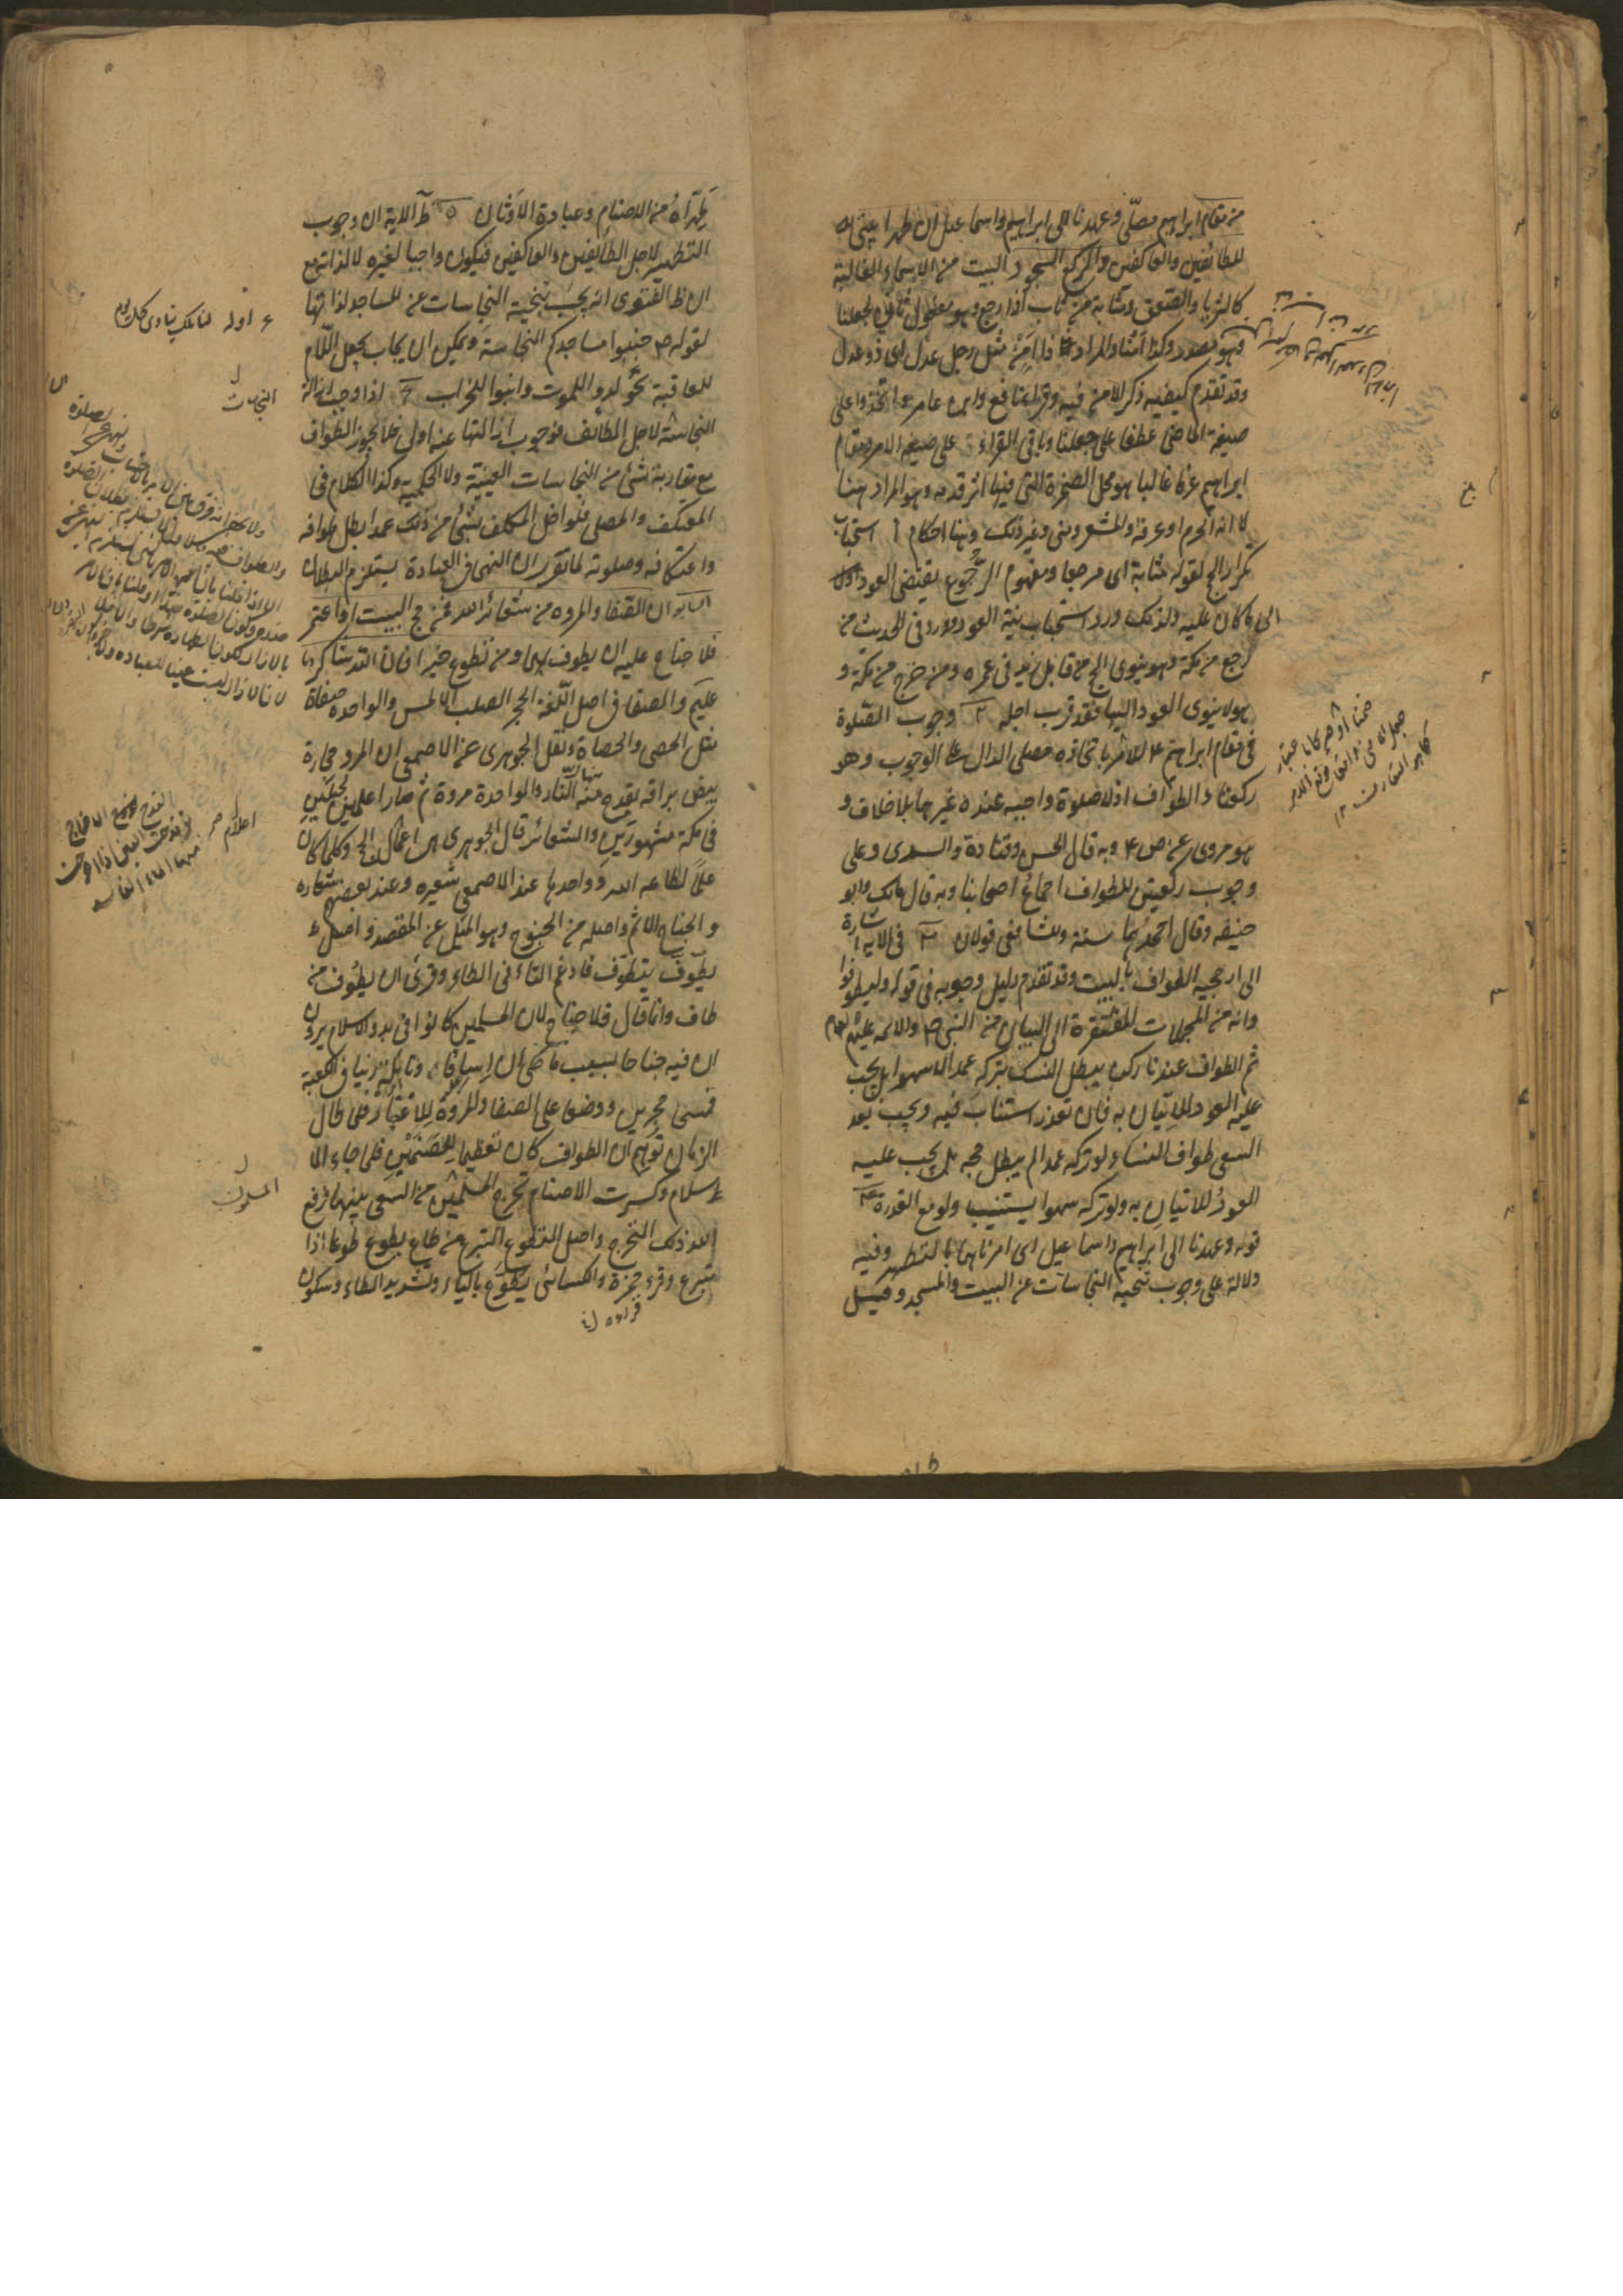 من مقام ابراهيم مصلّى وعهدنا الى ابراهيم واسماعيل ان طهرا بيتى
للطائفين والعاكفين والركع السجود البيت من الاسماء الغالبة
كالثريا والصعق ومثابة من ثاب اذا رجع وهو مفعول ثان لجعلنا
فهو مصدر وكذا امنا والمراد ذا امن مثل رجل عدل اى ذو عدل
وقد تقدم كيفيه ذكر الامن فيه وقراء نافع وابن عامر واتخذوا على
صيغة الماضى عطفا على جعلنا وباقى القراء على صيغة الامر ومقام
ابراهيم عرفا غالبا هو محل الصخرة التى فيها اثر قدمه وهو المراد هنا
لا انه الحرم او عرفة والمشعر ومنى وغير ذلك وهنا احكام ا استحباب
تكرار الحج لقوله مثابة اى مرجعا ومفهوم الرجوع يقتضى العود
الى ما كان عليه ولذلك ورد استحباب نية العود وورد فى الحديث من
رجع من مكة وهو ينوى الحج من قابل زيد فى عمره ومن خرج من مكة و
هو لا ينوى العود اليها فقد قرب اجله ٢ وجوب الصلوة
فى مقام ابراهيم ع للامر باتخاذه مصلى الدال على الوجوب وهو
ركعتا الطواف اذ لا صلوة واجبه عنده غيرهما بلا خلاف و
هو مروى عن ص ع وبه قال الحسن وقتادة والسدى وعلى
وجوب ركعتى الطواف اجماع اصحابنا وبه قال مالك وابو
حنيفه وقال احمد هما سنة وللشافعى قولان ٣ فى الاية اشارة
الى ارجحيه الطواف بالبيت وقد تقدم دليل وجوبه فى قوله وليطوفوا
وانه من المجملات المفتقرة الى البيان من النبى ص والائمه عليهم السلام
ثم الطواف عندنا ركن يبطل النسك بتركه عمدا لا سهوا بل يجب
عليه العود للاتيان به فان تعذر استناب فيه ويجب بعد
السعى طواف النساء ولو تركه عمدا لم يبطل حجه بل يجب عليه
العود للاتيان به ولو تركه سهوا يستنيب ولو مع القدرة ٤
قوله وعهدنا الى ابراهيم واسماعيل اى امرناهما بالتطهير وفيه
دلالة على وجوب تنحية النجاسات عن البيت والمسجد وقيل
طهراه من الاصنام وعبادة الاوثان ٥ ظ الاية ان وجوب
التطهير لاجل الطائفين والعاكفين فيكون واجبا لغيره لا لذاته مع
ان ظ الفتوى انه يجب تنحية النجاسات عن المساجد لذاتها
لقوله ص جنبوا مساجدكم النجاسة ويمكن ان يجاب بجعل اللام
للعاقبة نحو لدوا للموت وابنوا للخراب ٦ اذا وجب ازالة
النجاسة لاجل الطائف فوجوب ازالتها عنه اولى فلا يجوز الطواف
مع مقاربة شئ من النجاسات العينية ولا الحكمية وكذا الكلام فى
المعتكف والمصلى فلو اخل المكلف بشئ من ذلك عمدا بطل طوافه
واعتكافه وصلوته لما تقرر ان النهى فى العبادة يستلزم البطلان
ان الصفا والمروه من شعائر الله فمن حج البيت او اعتمر
فلا جناح عليه ان يطوف بهما ومن تطوع خيرا فان الله شاكر
عليم والصفا فى اصل اللغة الحجر الصلب الاملس والواحدة صفاة
مثل الحصى والحصاة ونقل الجوهرى عن الاصمعى ان المرو حجارة
بيض براقه يقدح منها النار والواحدة مروة ثم صارا علمين لجبلين
فى مكة مشهورين والشعائر قال الجوهرى هى اعمال الحج وكلما كان
علما لطاعه الله وواحدها عند الاصمعى شعيره وعند بعضهم شعاره
والجناح الاثم واصله من الجنوح وهو الميل عن المقصد واصل
يطوف يتطوف فادغم التاء فى الطاء وقرئ ان يطوف من
طاف وانما قال فلا جناح لان المسلمين كانوا فى بدو الاسلام يرون
ان فيه جناحا بسبب ما حكى ان اسافا ونايلة زنيا فى الكعبة
فمسخا حجرين ووضعا على الصفا والمروة للاعتبار فلما طال
الزمان توهم ان الطواف كان تعظيما للصنمين فلما جاء الا
سلام وكسرت الاصنام تحرج المسلمين من السعى بينهما فرفع
الله ذلك التحرج واصل التطوع التبرع من طاع يطوع طوعا اذا
تبرع وقرء حمزة والكسائى يطوع بالياء وتشديد الطاء وسكون
ع اوله لنا ملك ينادى كل يوم
النجاسات
المسلمون